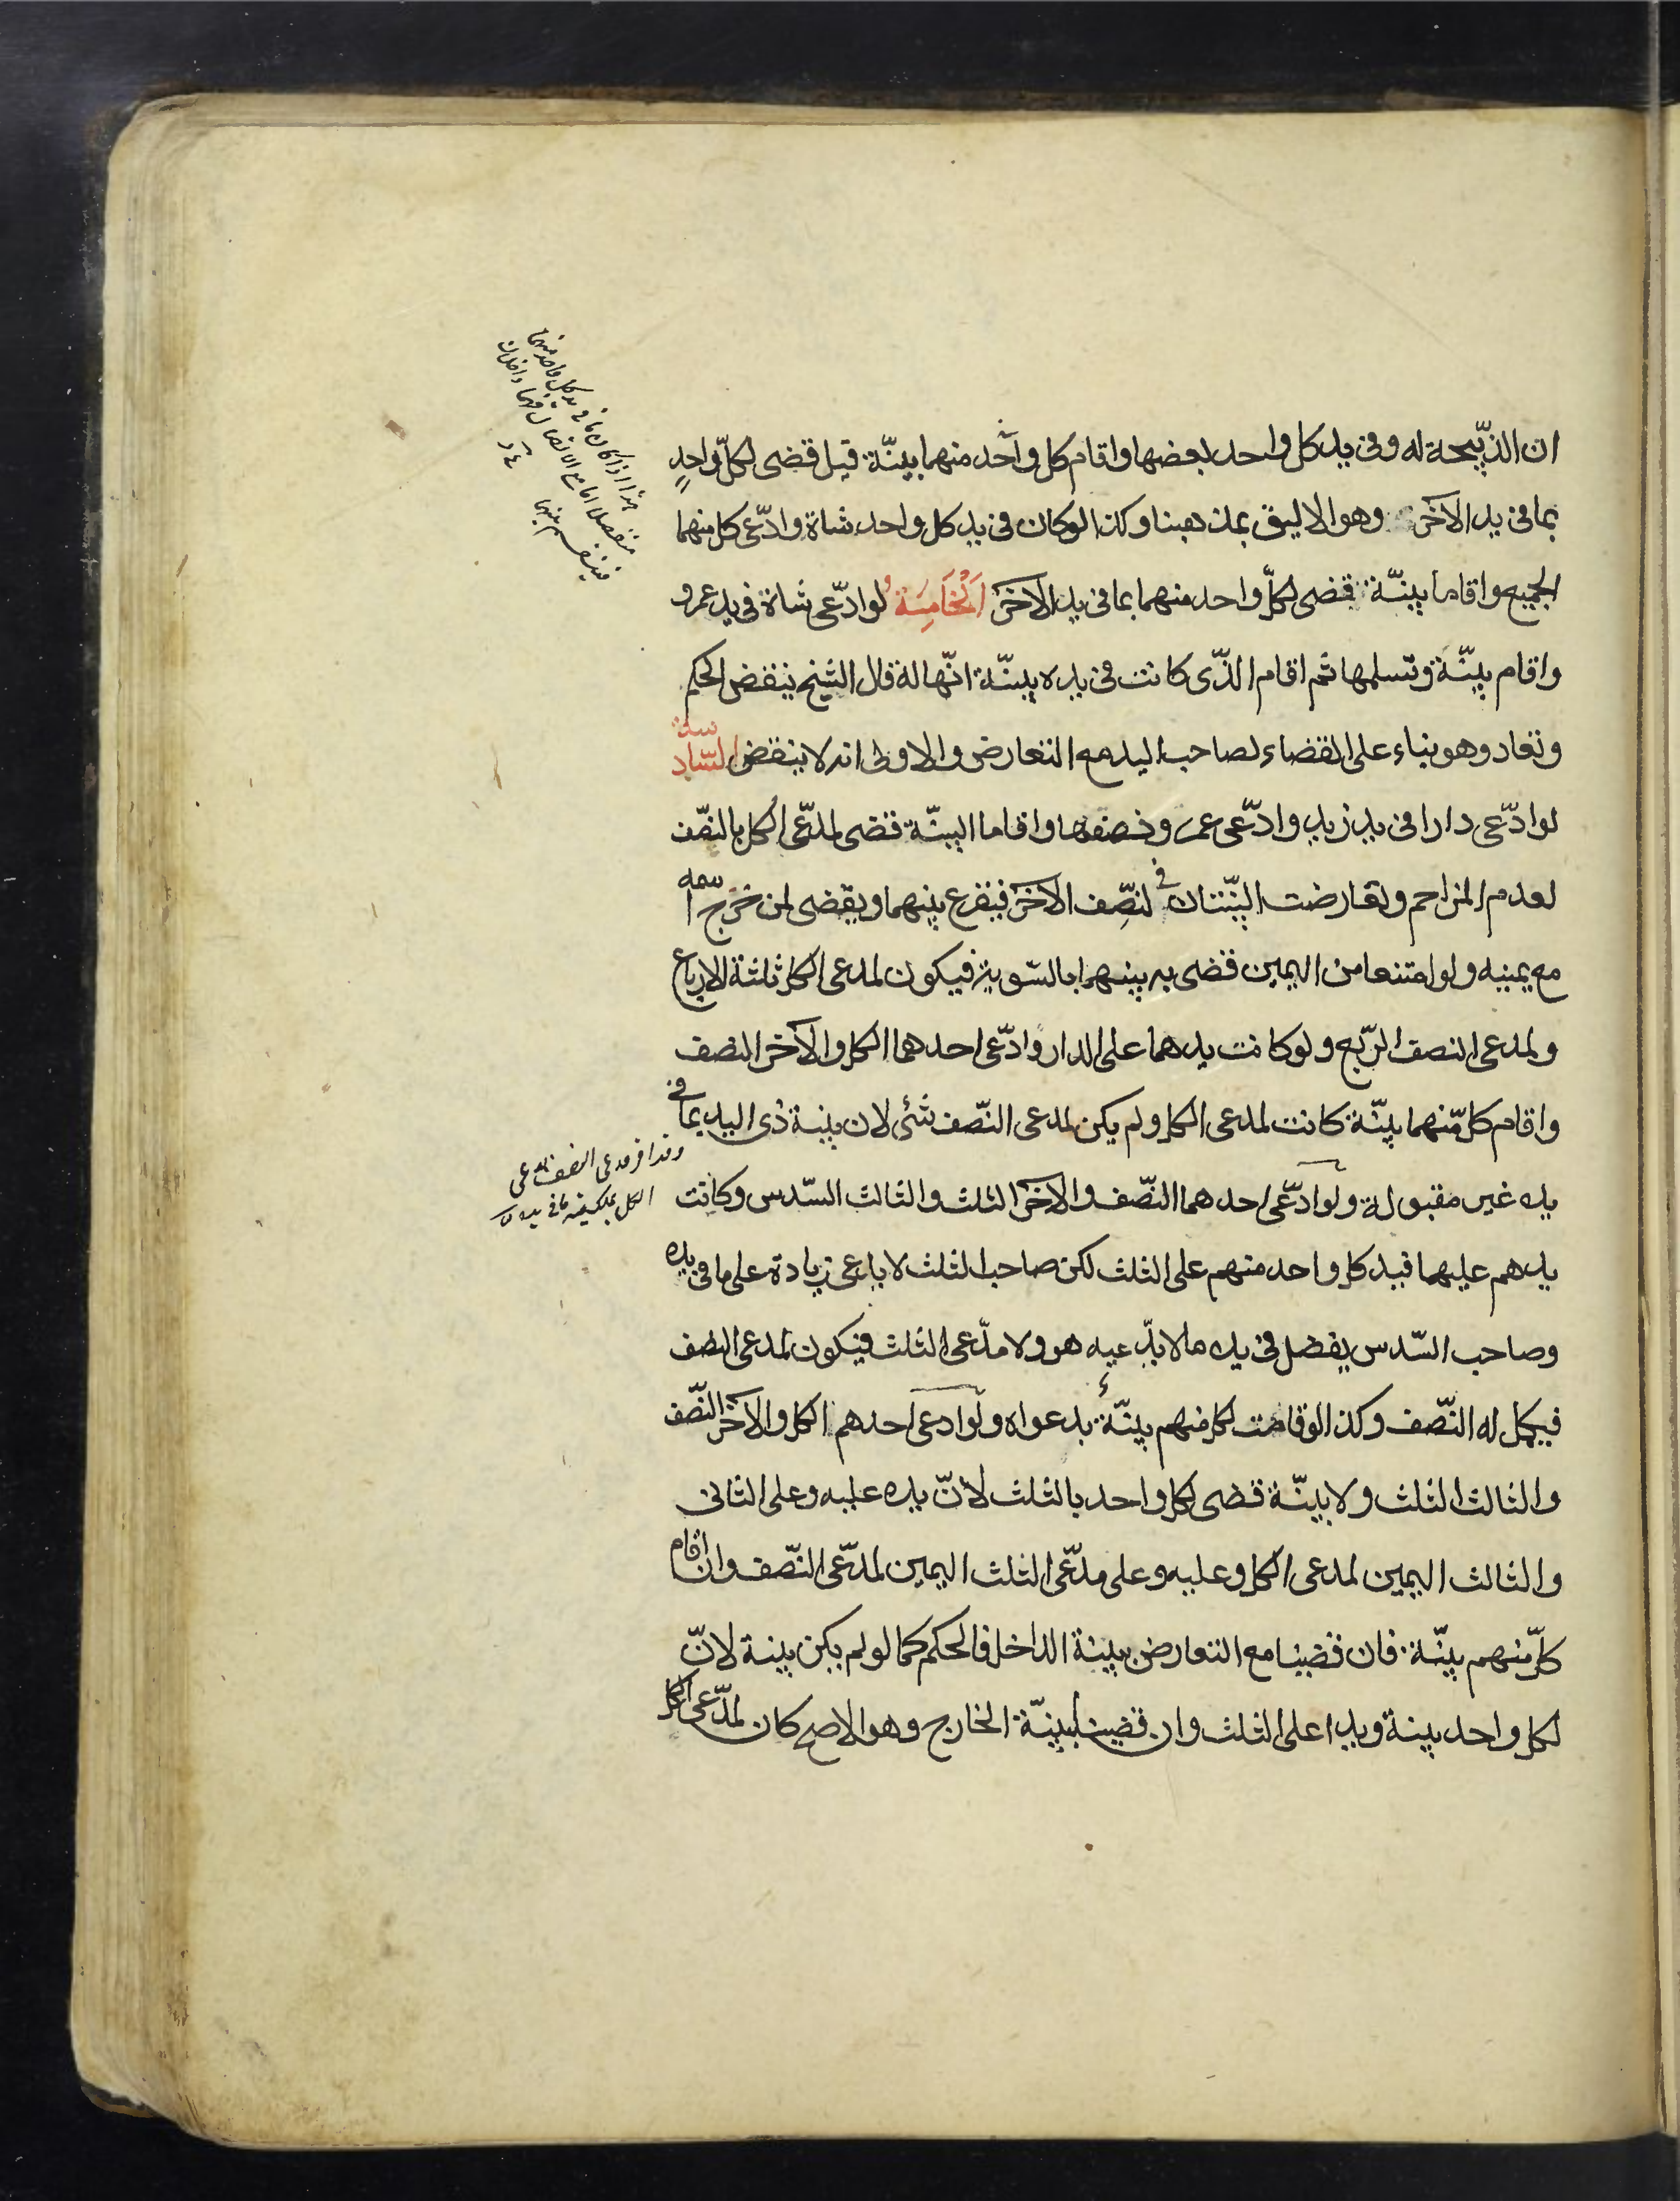 ان الذبيحة له وفى يد كل واحد بعضها واقام كل واحد منهما بينّة قيل قضى لكلّ واحدٍ
بما فى يد الآخر وهو الاليق بمذهبنا وكذا لو كان فى يد كل واحد شاة وادّعى كل منهما
الجميع واقاما بينّة قضى لكلّ واحد منهما بما فى يد الآخر اَلْخَامِسَةُ لو ادّعى شاة فى يد عمرو
واقام بينّة وتسلمها ثم اقام الذّى كانت فى يده بينّة انّها له قال الشيخ ينقض الحكم
وتعاد وهو بناء على القضاء لصاحب اليد مع التعارض والاولى انه لا ينقض السّادسة
لو ادّعى دارا فى يد زيد وادّعى عمرو نصفها واقاما البينّة قضى لمدّعى الكل بالنصّف
لعدم المزاحم وتعارضت البيّنتان فى النصِّف الآخر فيقرع بينهما ويقضى لمن خرج اسمه
مع يمينه ولو امتنعا من اليمين قضى به بينهما بالسّوية فيكون لمدعى الكل ثلثة الارباع
ولمدعى النصف الرّبع ولو كانت يدهما على الدار وادّعى احدهما الكل والآخر النصف
واقام كلّ منهما بينّة كانت لمدعى الكل ولم يكن لمدعى النصّف شئى لان بينة ذى اليد بما فى
يده غير مقبولة ولو ادّعى احدهما النصّف والآخر الثلث والثالث السّدس وكانت
يدهم عليها فيد كل واحد منهم على الثلث لكن صاحب الثلث لا يدعى زيادة على ما فى يده
وصاحب السّدس يفضل فى يده ما لا يدّعيه هو ولا مدّعى الثلث فيكون لمدعى النصف
فيكمل له النصّف وكذا لو قامت لكل منهم بينّة بدعواه ولو ادعى احدهم الكل والآخر النصّف
والثالث الثلث ولا بينّة قضى لكل واحد بالثلث لأنّ يده عليه وعلى الثانى
والثالث اليمين لمدعى الكل وعليه وعلى مدّعى الثلث اليمين لمدّعى النصّف وان اقام
كلّ منهم بينّة فان قضينا مع التعارض ببينة الداخل فالحكم كما لو لم يكن بينة لانّ
لكل واحد بينة ويدا على الثلث وان قضينا ببينّة الخارج وهو الاصح كان لمدّعى الكل
هذا اذا كان ما فى يد كل واحد منهما
منفصلا اما مع الاتصال
فينقسم بينهما
مدعى النصف لمدعى
الكل